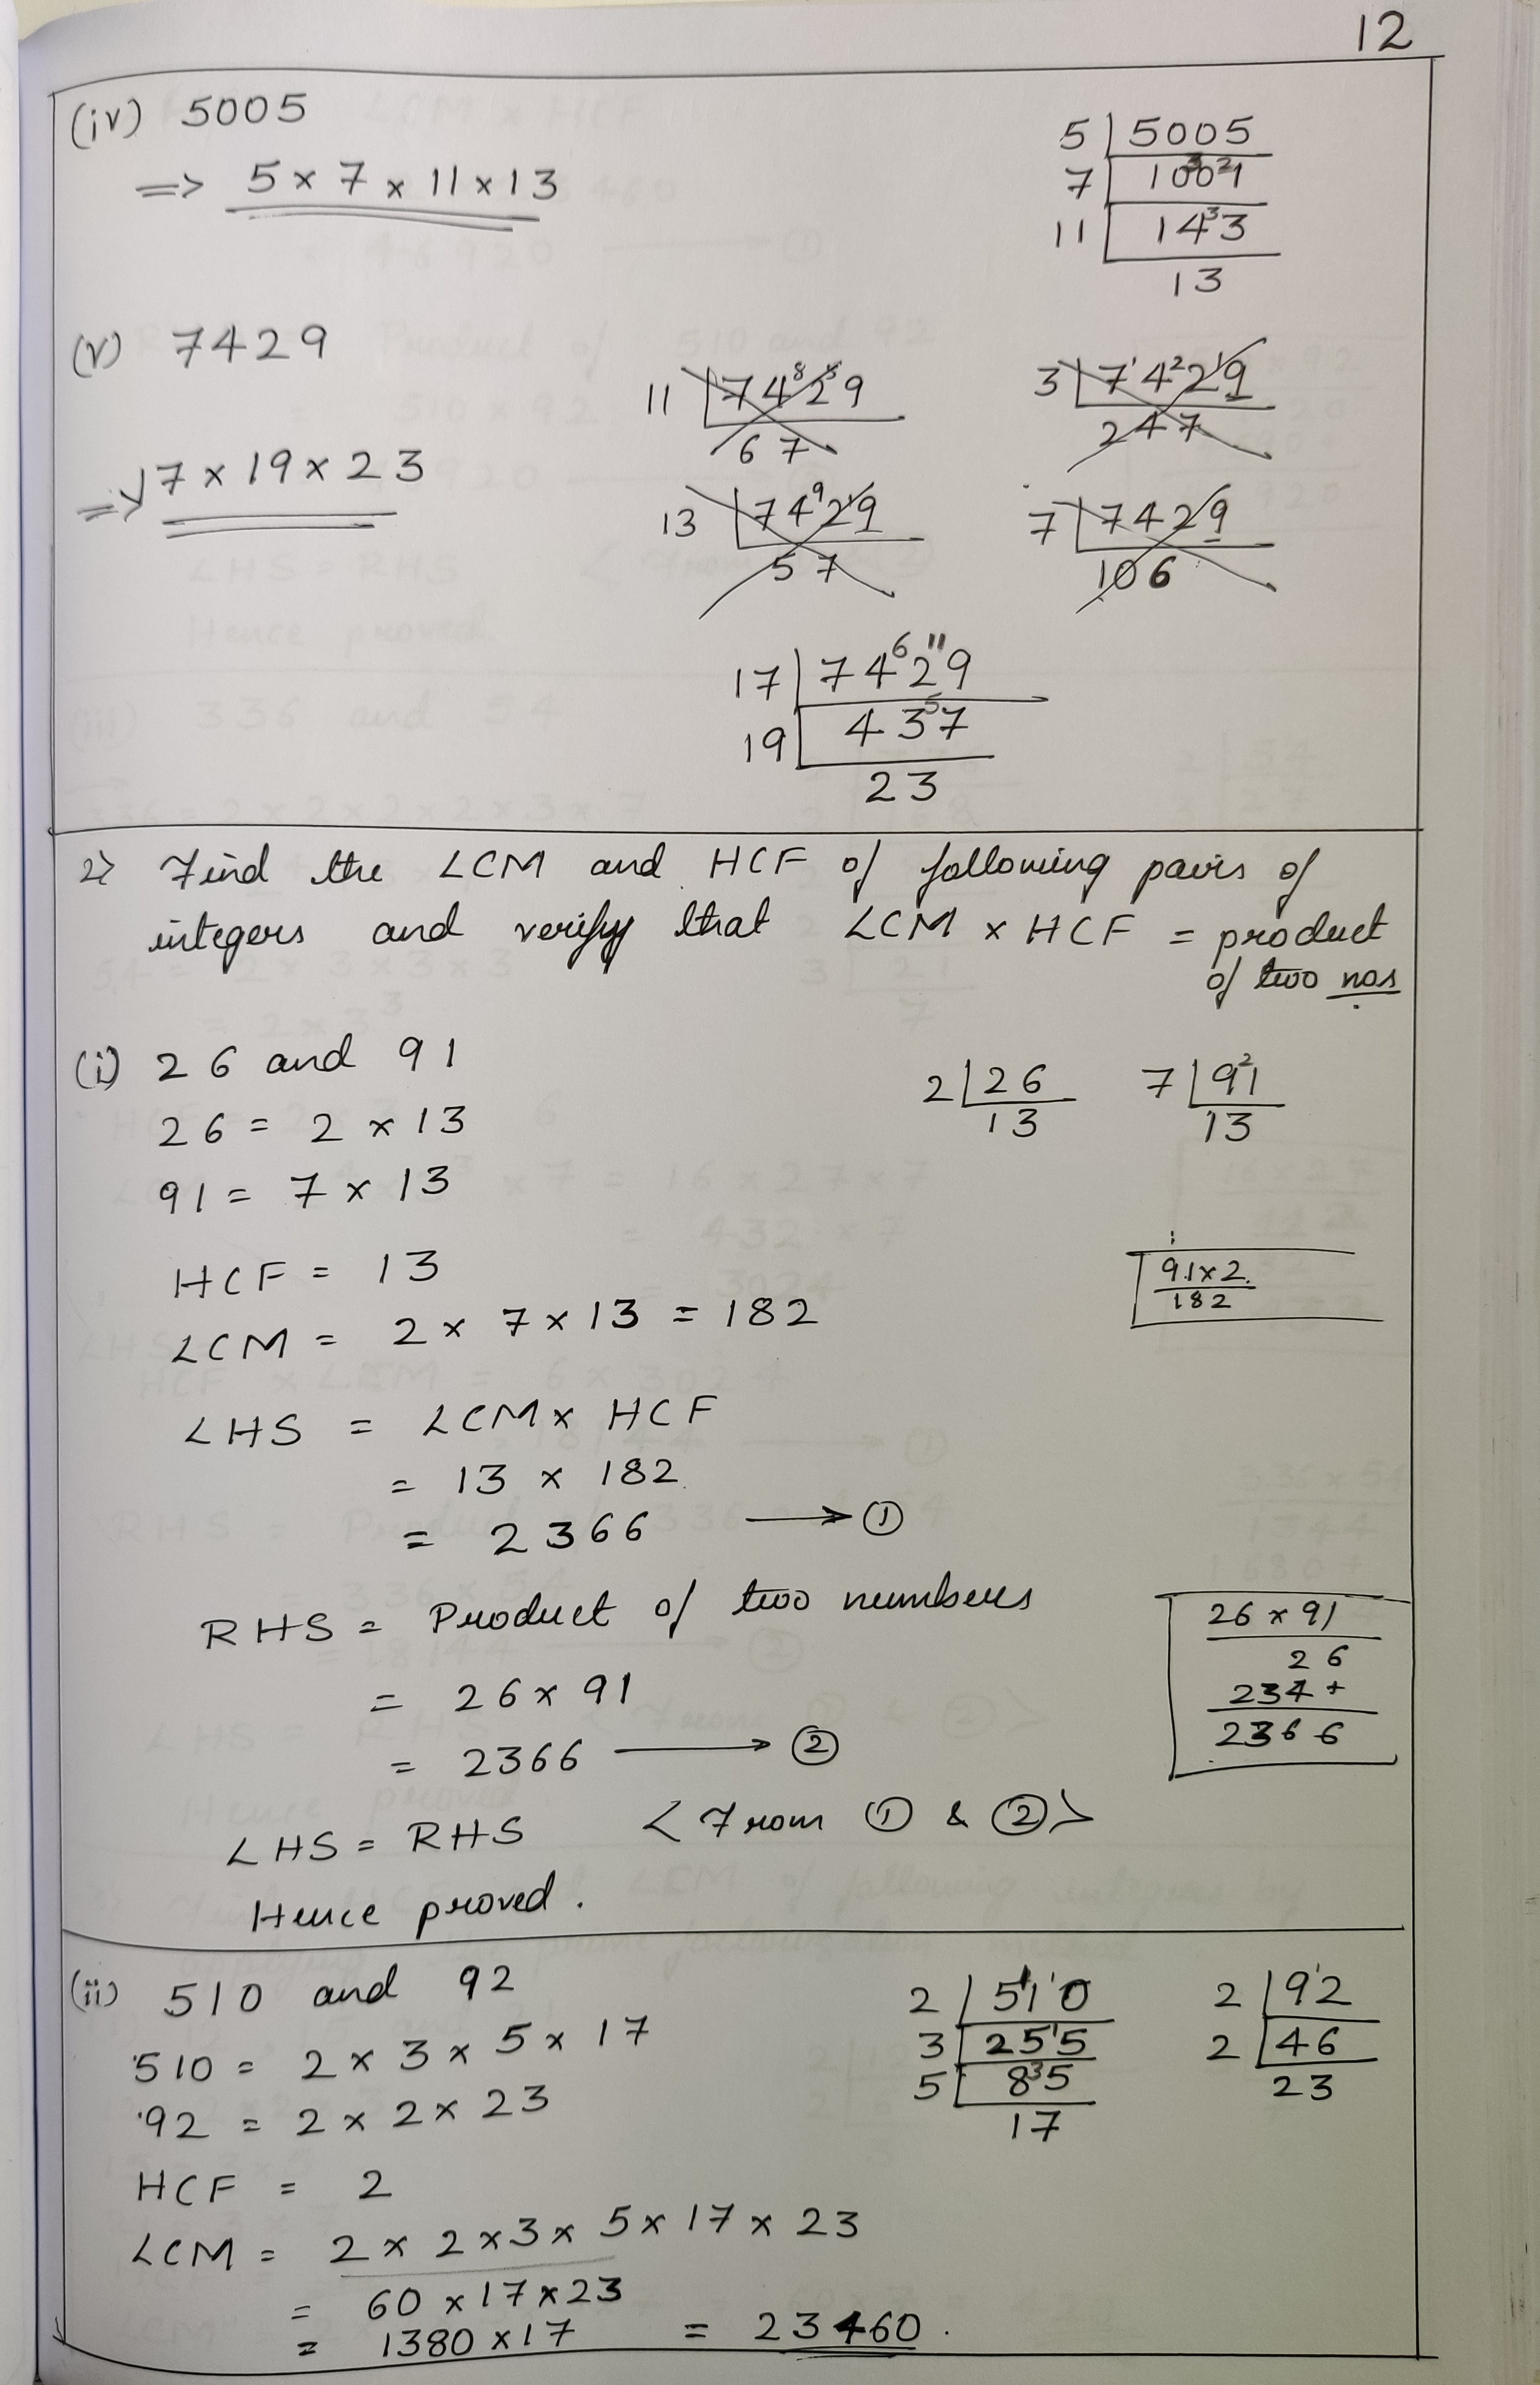 12
(iv) 5005
=> 5 × 7 × 11 × 13
5 | 5005
7 | 1001
11 | 143
13
(v) 7429
=> 17 × 19 × 23
11 | 7429
67
3 | 7429
247
13 | 7429
57
7 | 7429
106
17 | 7429
19 | 437
23
2> Find the LCM and HCF of following pairs of
integers and verify that LCM × HCF = product
of two nos
(i) 26 and 91
26 = 2 × 13
91 = 7 × 13
2 | 26
13
7 | 91
13
HCF = 13
LCM = 2 × 7 × 13 = 182
91 × 2
182
LHS = LCM × HCF
= 13 × 182
= 2366 → ①
RHS = Product of two numbers
= 26 × 91
= 2366 → ②
26 × 91
26
234 +
2366
LHS = RHS < From ① & ② >
Hence proved.
(ii) 510 and 92
510 = 2 × 3 × 5 × 17
92 = 2 × 2 × 23
2 | 510
3 | 255
5 | 85
17
2 | 92
2 | 46
23
HCF = 2
LCM = 2 × 2 × 3 × 5 × 17 × 23
= 60 × 17 × 23
= 1380 × 17 = 23460.